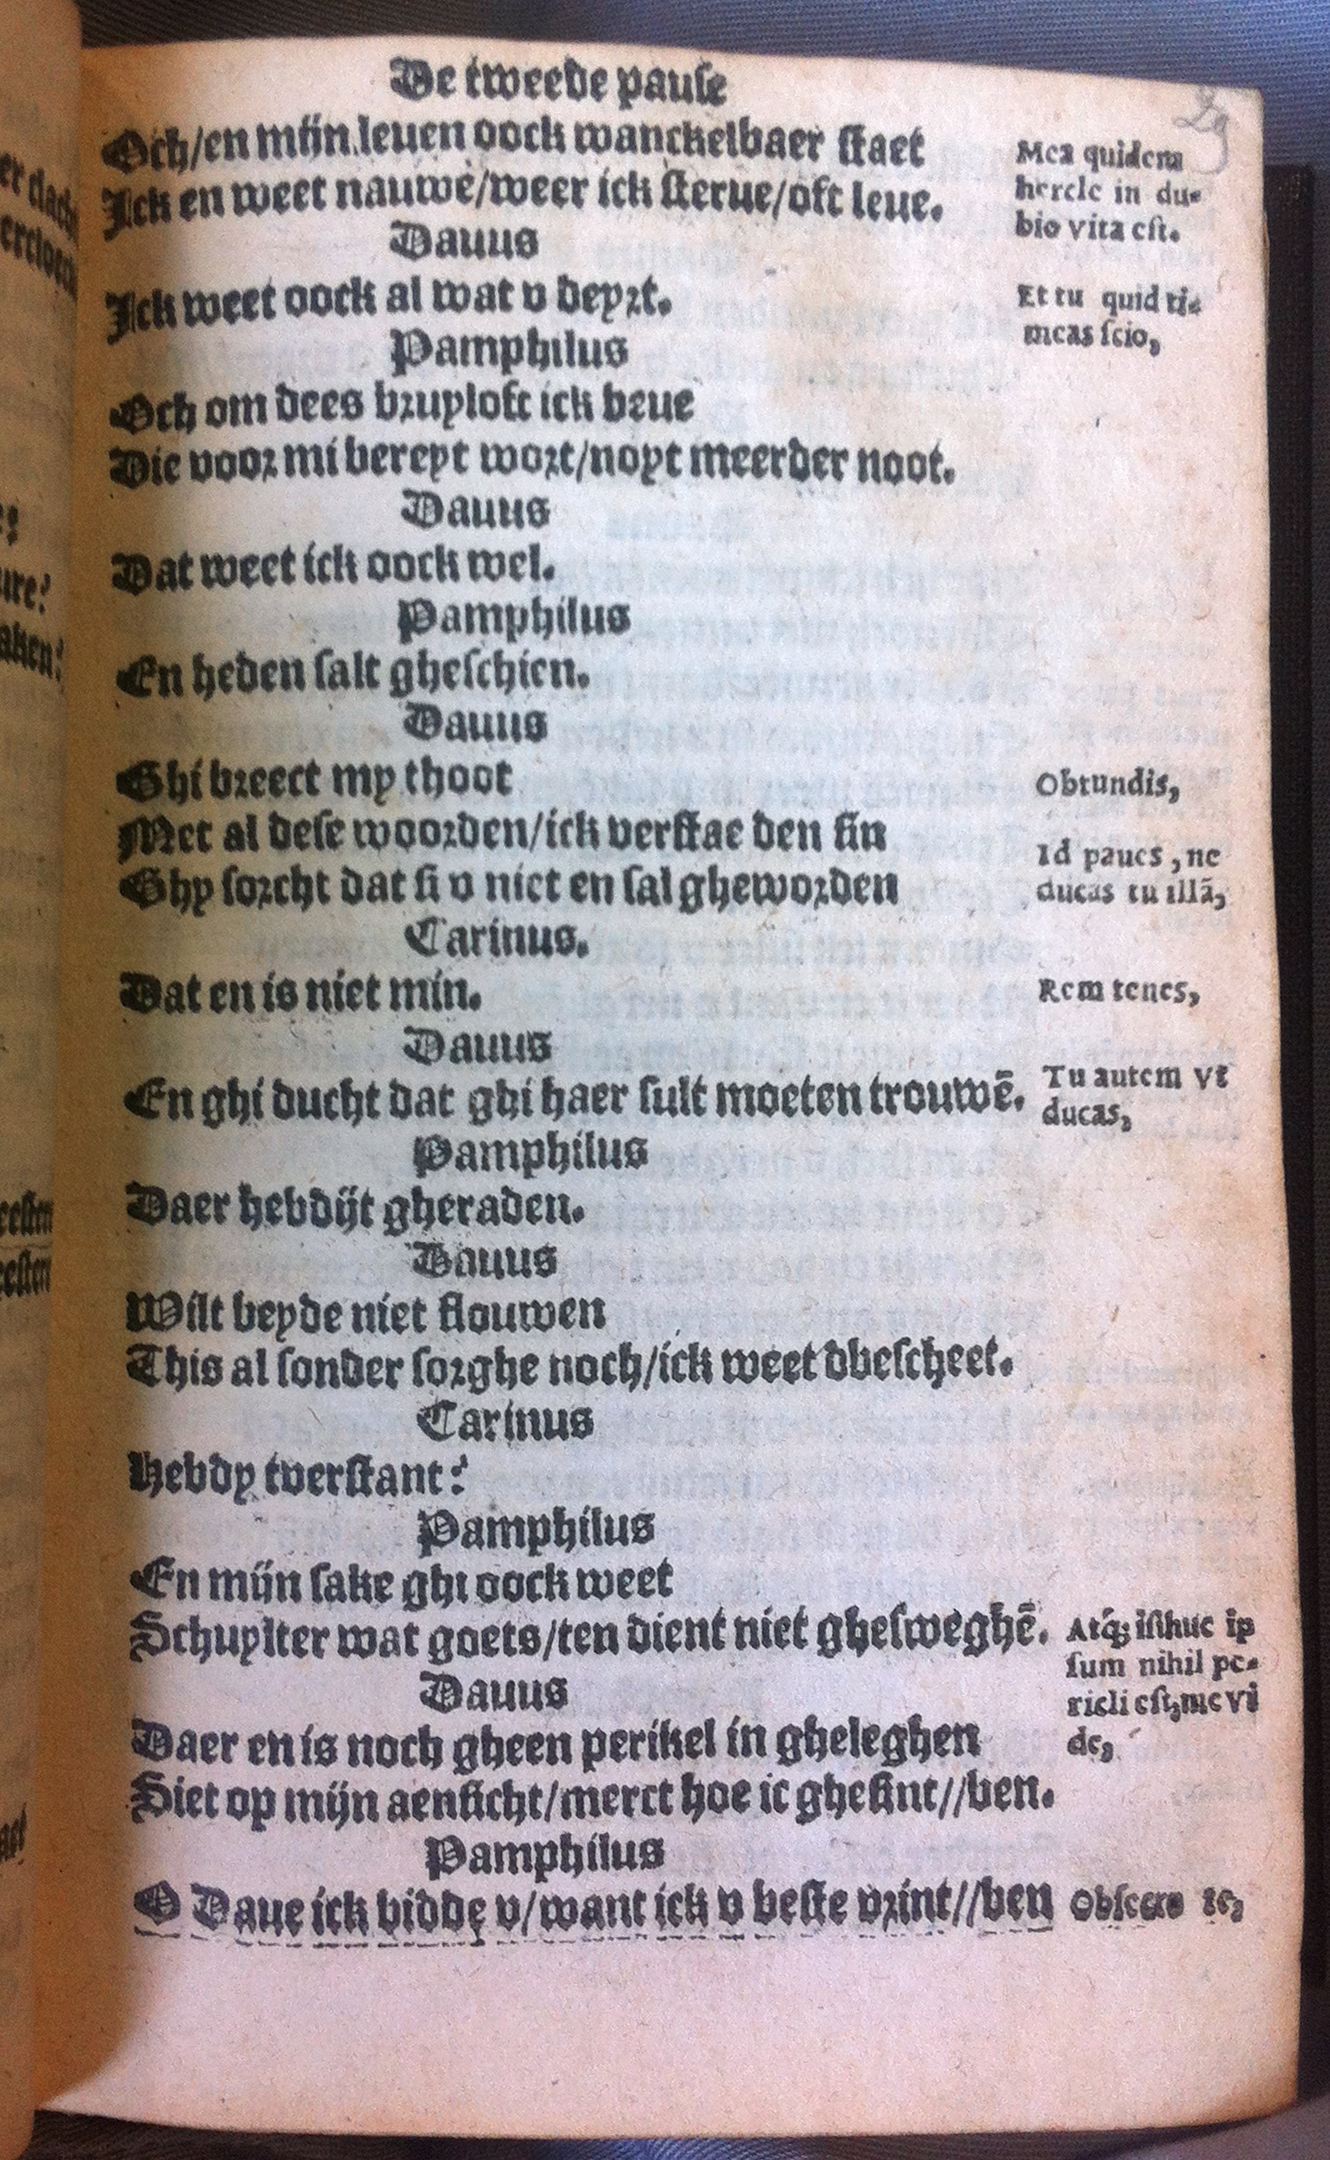 De tweede pause
29
Och/en mijn leuen oock wanckelbaer staet
Ick en weet nauwe/weer ick sterue/oft leue.
Mea quidem
hercle in du-
bio vita est.
Dauus
Ick weet oock al wat v deyrt.
Et tu quid ti-
meas scio,
Pamphilus
Och om dees bruyloft ick beue
Die voor mi bereyt wort/noyt meerder noot.
Dauus
Dat weet ick oock wel.
Pamphilus
En heden salt gheschien.
Dauus
Ghi breect my thoot
Obtundis,
Met al dese woorden/ick verstae den sin
Ghy sorcht dat si v niet en sal gheworden
Id paues, ne
ducas tu illā,
Carinus.
Dat en is niet min.
Rem tenes,
Dauus
En ghi ducht dat ghi haer sult moeten trouwē.
Tu autem vt
ducas,
Pamphilus
Daer hebdijt gheraden.
Dauus
Wilt beyde niet flouwen
This al sonder sorghe noch/ick weet dbescheet.
Carinus
Hebdy tverstant?
Pamphilus
En mijn sake ghi oock weet
Schuylter wat goets/ten dient niet ghesweghē.
Atq́; isthuc ip
sum nihil pe-
ricli est, me vi
de,
Dauus
Daer en is noch gheen perikel in gheleghen
Siet op mijn aensicht/merct hoe ic ghesint//ben.
Pamphilus
O Daue ick bidde v/want ick v beste vrint//ben
Obsecro &c,